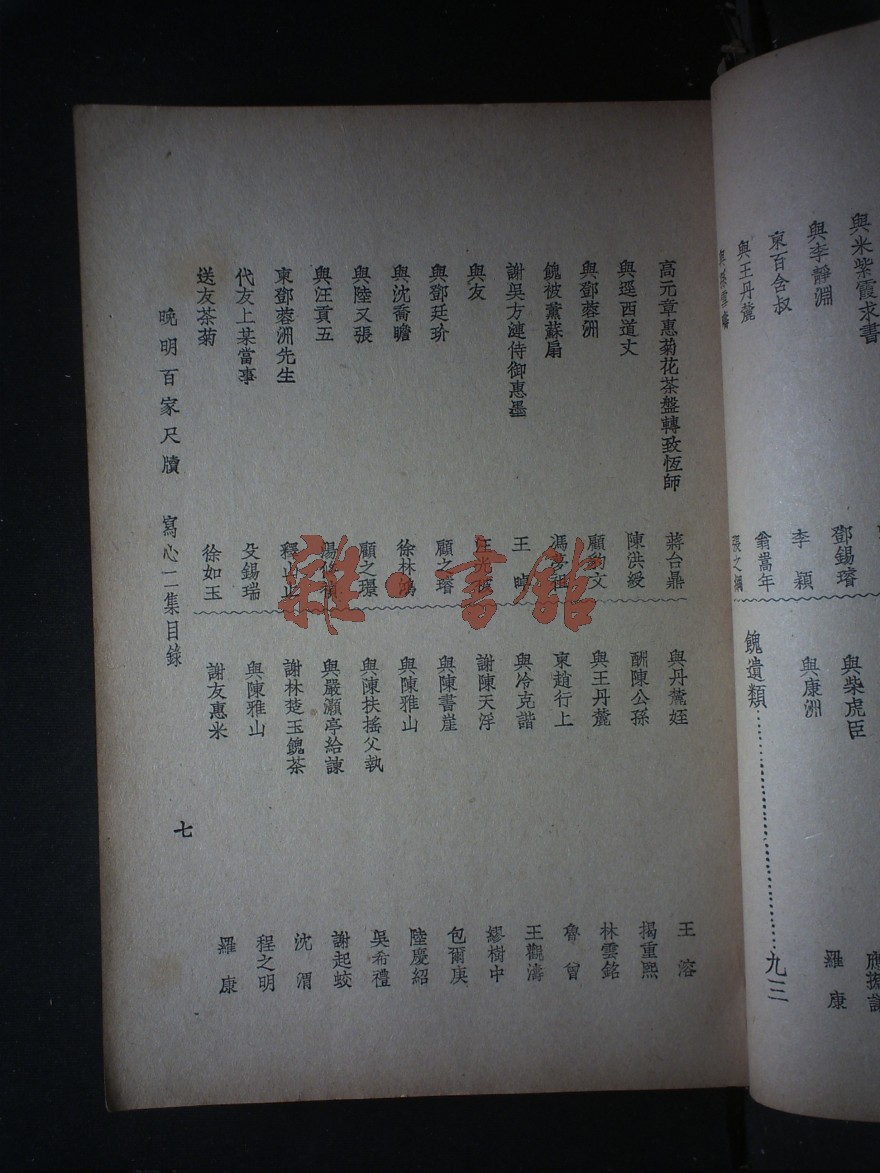 與米紫霞求書
鄧錫璿
與李靜淵
李穎
柬百含叔
翁嵩年
與王丹麓
與柴虎臣
與康洲
羅康
餽遺類
九三
高元章惠菊花茶盤轉致恆師
蔣台鼎
與遥西道丈
陳洪綬
與鄧蓉洲
顧豹文
餽被薰蘇扇
謝吳方漣侍御惠墨
王
與友
汪光被
與鄧廷玠
顧之璿
與沈喬瞻
徐林鴻
與陸又張
顧之環
與汪貢五
柬鄧蓉洲先生
釋山止
代友上某當事
殳錫瑞
送友茶菊
徐如玉
與丹麓姪
王溶
酬陳公孫
揭重熙
與王丹麓
林雲銘
柬趙行上
魯曾
與冷克諧
王觀濤
謝陳天浮
繆樹中
與陳書崖
包爾庚
與陳雅山
陸慶紹
與陳扶搖父執
吳希禮
與嚴灝亭給諫
謝起蛟
謝林楚玉餽茶
沈渭
與陳雅山
程之明
謝友惠米
羅康
晚明百家尺牘 寫心二集目錄
七
雜·書館